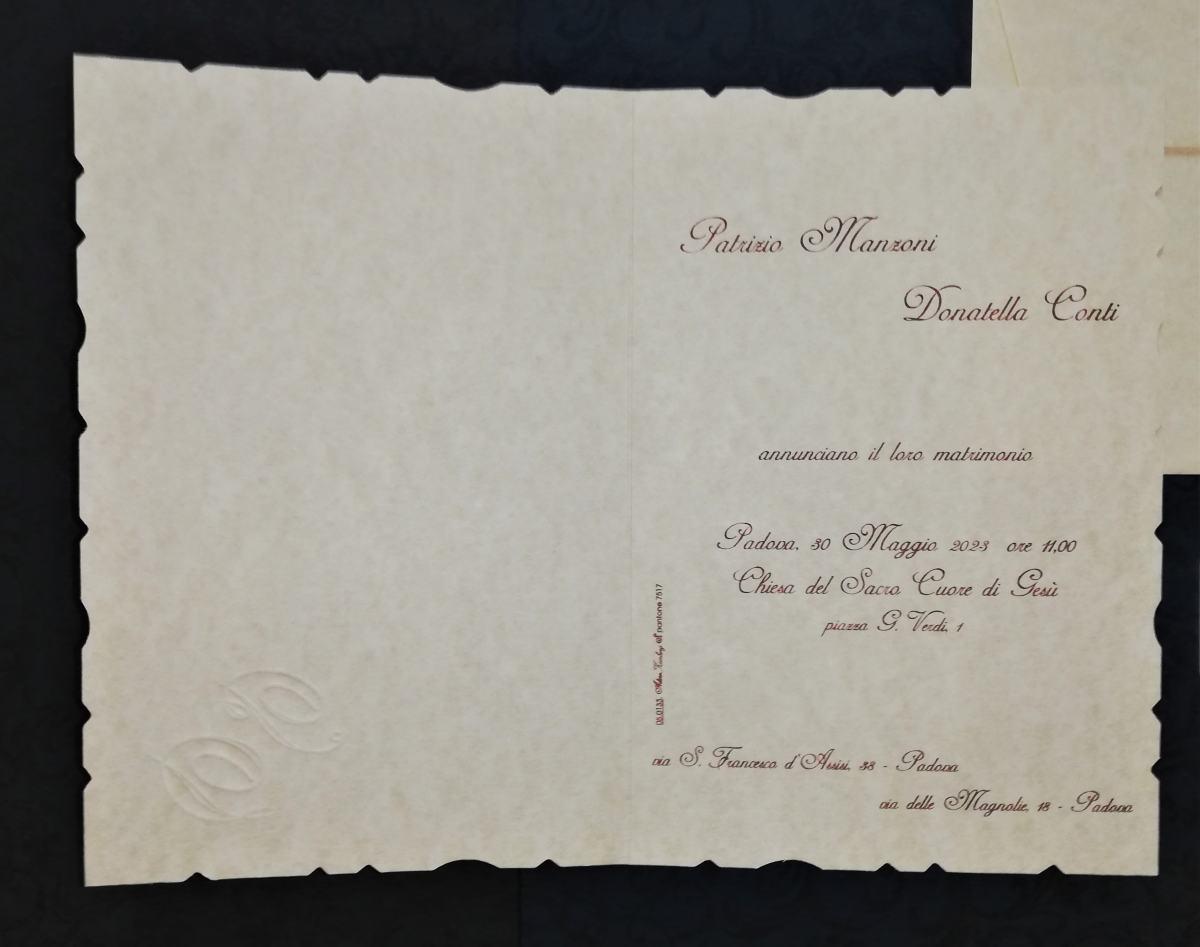 Patrizio Manzoni
Donatella Conti
annunciano il loro matrimonio
Padova, 30 Maggio 2023 ore 11,00
Chiesa del Sacro Cuore di Gesù
piazza G. Verdi, 1
pantone 7517
via S. Francesco d'Assisi, 38 - Padova
via delle Magnolie, 18 - Padova